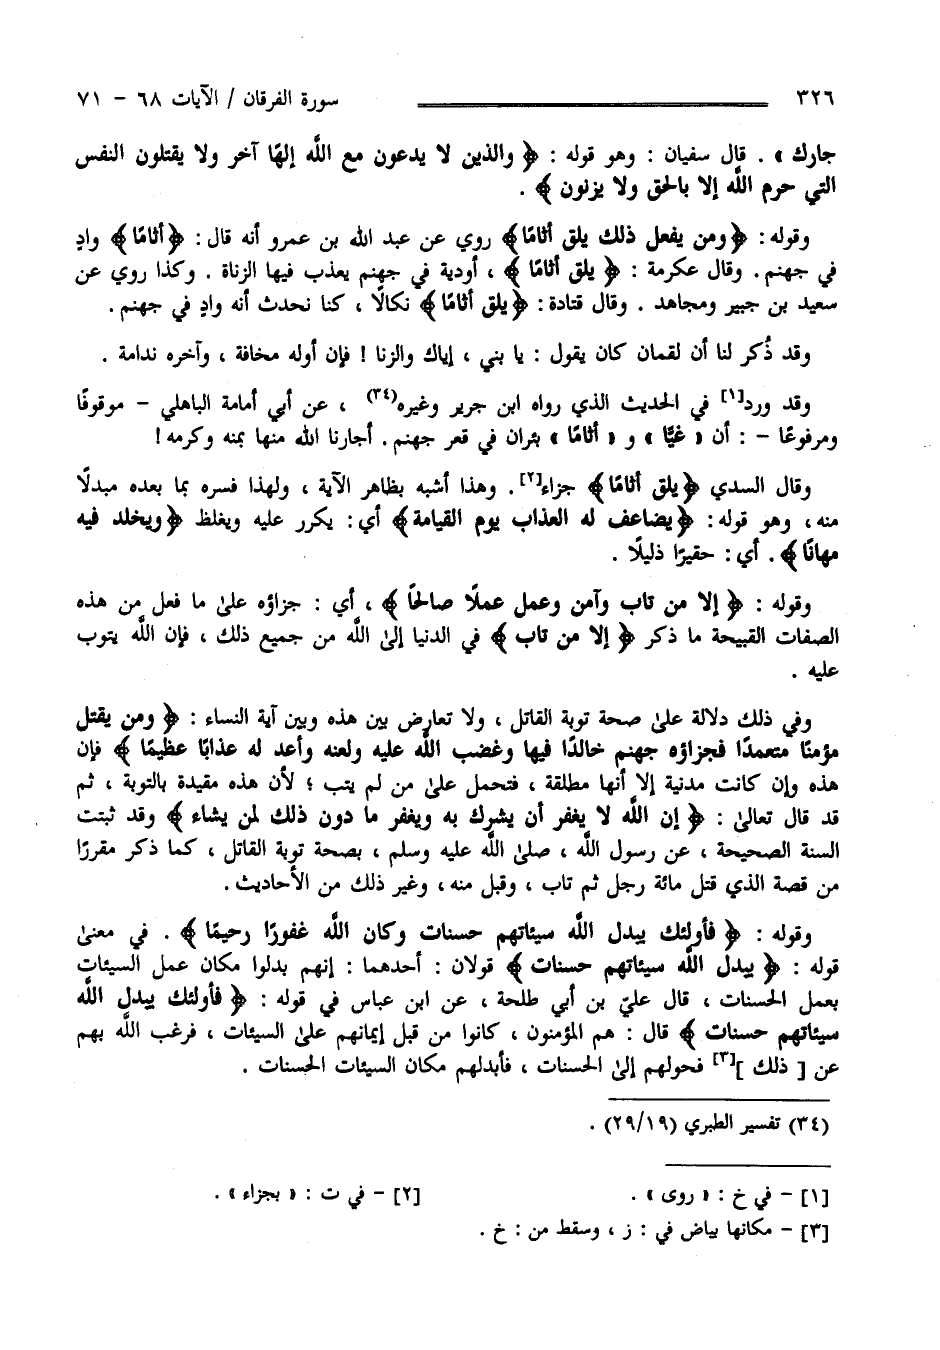 ٣٢٦ سورة الفرقان / الآيات ٦٨ - ٧١
جارك » . قال سفيان : وهو قوله : ﴿ والذين لا يدعون مع اللَّه إلهًا آخر ولا يقتلون النفس
التي حرم اللَّه إلا بالحق ولا يزنون ﴾ .
وقوله : ﴿ومن يفعل ذلك يلق أثامًا﴾ روي عن عبد الله بن عمرو أنه قال : ﴿أثامًا﴾ وادٍ
في جهنم . وقال عكرمة : ﴿ يلق أثامًا ﴾ ، أودية في جهنم يعذب فيها الزناة . وكذا روي عن
سعيد بن جبير ومجاهد . وقال قتادة : ﴿يلق أثامًا﴾ نكالًا ، كنا نحدث أنه وادٍ في جهنم .
وقد ذُكر لنا أن لقمان كان يقول : يا بني ، إياك والزنا ! فإن أوله مخافة ، وآخره ندامة .
وقد ورد[١] في الحديث الذي رواه ابن جرير وغيره(٣٤) ، عن أبي أمامة الباهلي - موقوفًا
ومرفوعًا - : أن « غيًّا » و « أثامًا » بئران في قعر جهنم . أجارنا الله منها بمنه وكرمه !
وقال السدي ﴿يلق أثامًا﴾ جزاء[٢] . وهذا أشبه بظاهر الآية ، ولهذا فسره بما بعده مبدلًا
منه ، وهو قوله : ﴿يضاعف له العذاب يوم القيامة﴾ أي : يكرر عليه ويغلظ ﴿ويخلد فيه
مهانًا﴾ . أي : حقيرًا ذليلًا .
وقوله : ﴿ إلا من تاب وآمن وعمل عملًا صالحًا ﴾ ، أي : جزاؤه علىٰ ما فعل من هذه
الصفات القبيحة ما ذكر ﴿ إلا من تاب ﴾ في الدنيا إلىٰ اللَّه من جميع ذلك ، فإن اللَّه يتوب
عليه .
وفي ذلك دلالة علىٰ صحة توبة القاتل ، ولا تعارض بين هذه وبين آية النساء : ﴿ ومن يقتل
مؤمنًا متعمدًا فجزاؤه جهنم خالدًا فيها وغضب اللَّه عليه ولعنه وأعد له عذابًا عظيمًا ﴾ فإن
هذه وإن كانت مدنية إلا أنها مطلقة ، فتحمل علىٰ من لم يتب ؛ لأن هذه مقيدة بالتوبة ، ثم
قد قال تعالىٰ : ﴿ إن اللَّه لا يغفر أن يشرك به ويغفر ما دون ذلك لمن يشاء ﴾ وقد ثبتت
السنة الصحيحة ، عن رسول اللَّه ، صلىٰ اللَّه عليه وسلم ، بصحة توبة القاتل ، كما ذكر مقررًا
من قصة الذي قتل مائة رجل ثم تاب ، وقبل منه ، وغير ذلك من الأحاديث .
وقوله : ﴿ فأولئك يبدل اللَّه سيئاتهم حسنات وكان اللَّه غفورًا رحيمًا ﴾ . في معنىٰ
قوله : ﴿ يبدل اللَّه سيئاتهم حسنات ﴾ قولان : أحدهما : إنهم بدلوا مكان عمل السيئات
بعمل الحسنات ، قال عليّ بن أبي طلحة ، عن ابن عباس في قوله : ﴿ فأولئك يبدل اللَّه
سيئاتهم حسنات ﴾ قال : هم المؤمنون ، كانوا من قبل إيمانهم علىٰ السيئات ، فرغب اللَّه بهم
عن [ ذلك ][٣] فحولهم إلىٰ الحسنات ، فأبدلهم مكان السيئات الحسنات .
(٣٤) تفسير الطبري (٢٩/١٩) .
[١] - في خ : « روى » . [٢] - في ت : « بجزاء » .
[٣] - مكانها بياض في : ز ، وسقط من : خ .